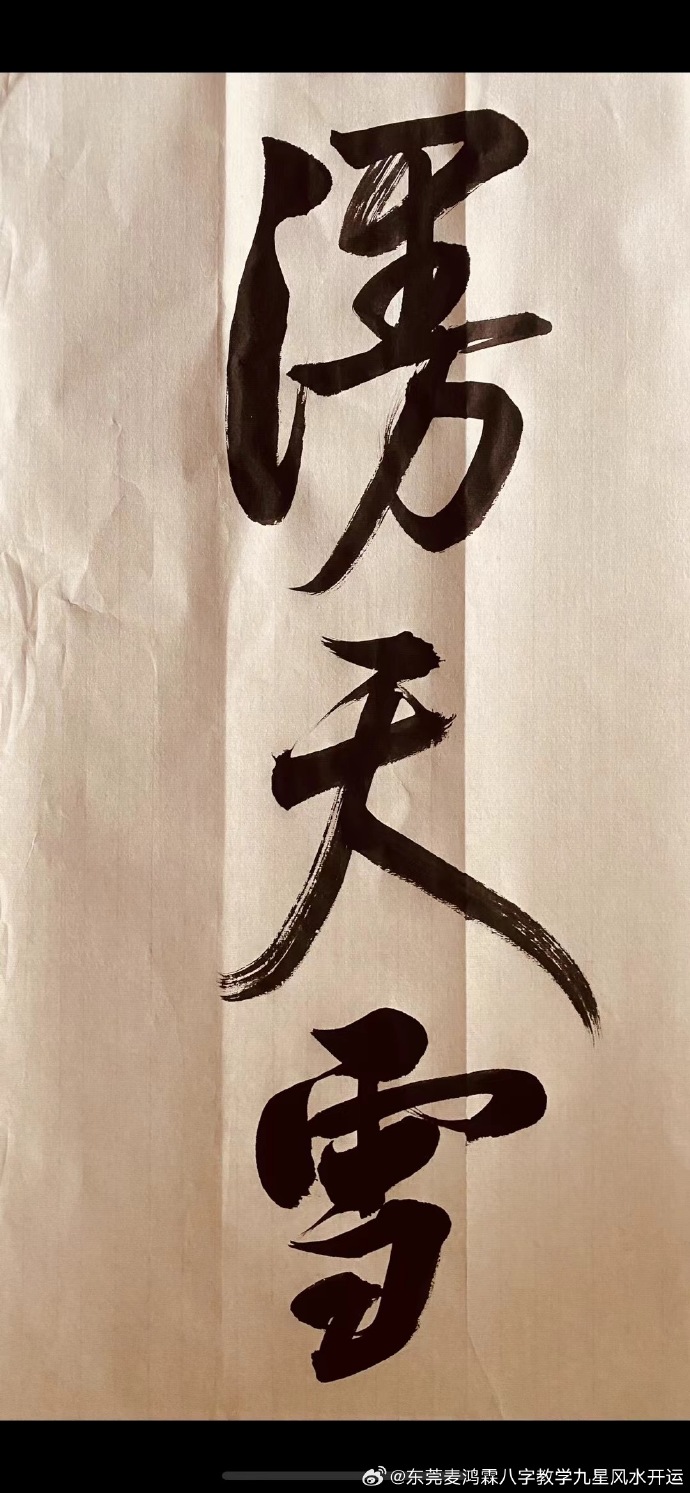 漫天雪
@东莞麦鸿霖八字教学九星风水开运